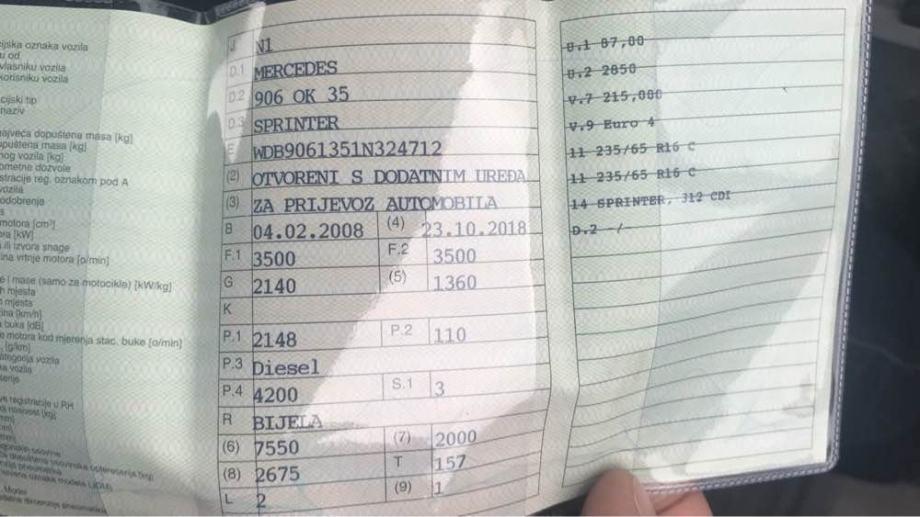 ijska oznaka vozila
u od
vlasniku vozila
korisniku vozila
cijski tip
naziv
najveća dopuštena masa [kg]
opuštena masa [kg]
nog vozila [kg]
ometne dozvole
stracije reg. oznakom pod A
vozila
odobrenja
motora [cm³]
ora [kW]
ili izvora snage
ina vrtnje motora [o/min]
e i mase (samo za motocikle) [kW/kg]
h mjesta
mjesta
ina [km/h]
buka [dB]
e motora kod mjerenja stac. buke [o/min]
[g/km]
ategorija vozila
registracije u RH
J N1
D.1 MERCEDES
D.2 906 OK 35
D.3 SPRINTER
E WDB9061351N324712
(2) OTVORENI S DODATNIM UREĐA
(3) ZA PRIJEVOZ AUTOMOBILA
B 04.02.2008 (4) 23.10.2018
F.1 3500 F.2 3500
G 2140 (5) 1360
K
P.1 2148 P.2 110
P.3 Diesel
P.4 4200 S.1 3
R BIJELA
(6) 7550 (7) 2000
(8) 2675 T 157
L 2 (9) 1
U.1 87,00
U.2 2850
V.7 215,000
V.9 Euro 4
11 235/65 R16 C
11 235/65 R16 C
14 SPRINTER, 312 CDI
D.2 -/-